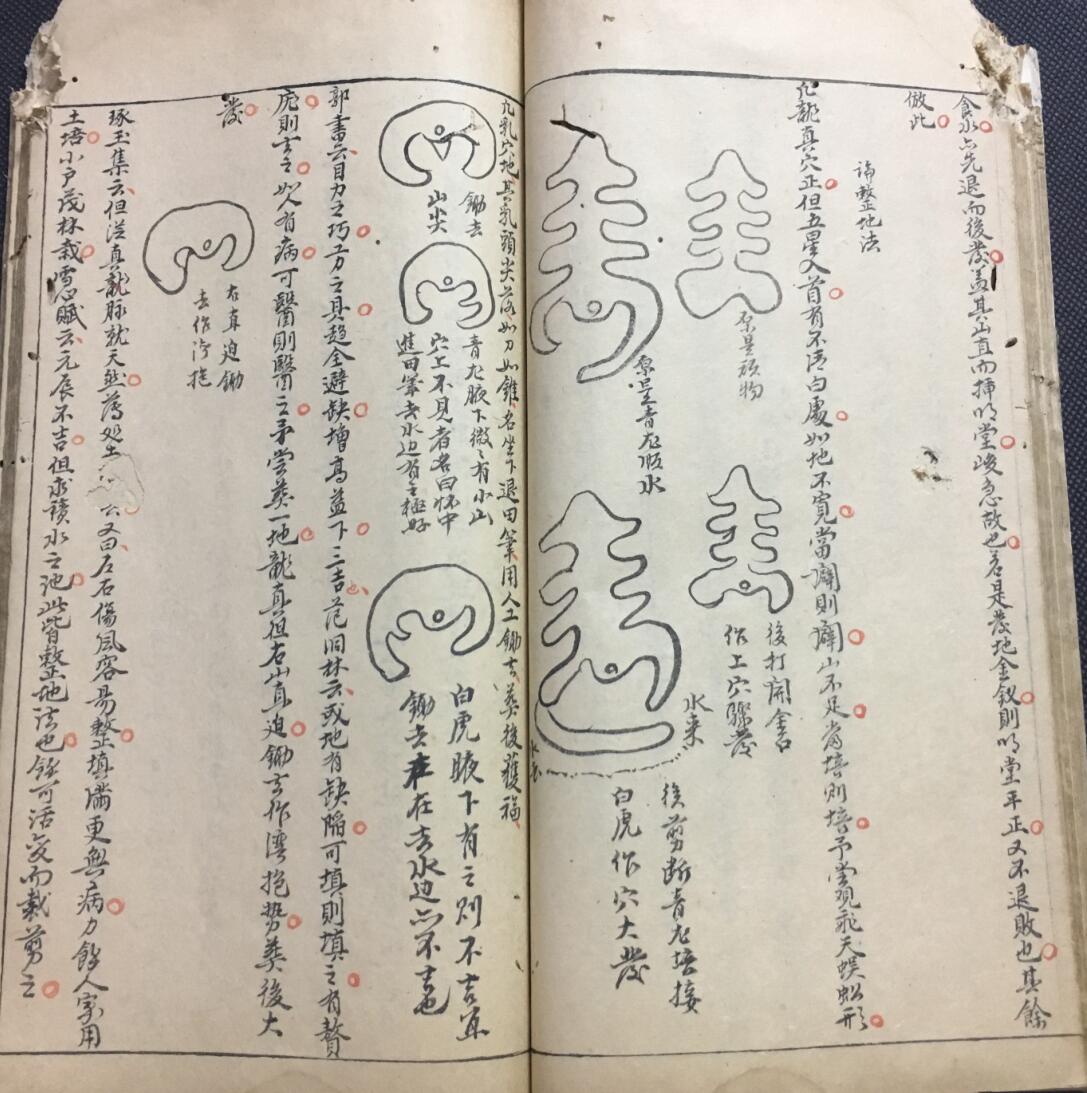 食水亦先退而後發盖其山直而揷明堂峻急故也若是發地金釵則明堂平正又不退敗也其餘
倣此
論整地法
凡龍真穴正但五星入首有不清白處如地不寬當闢則闢山不足當培則培予嘗观飛天蜈蚣形
原是預物
後打開金口
作上穴驟發
原是青龙順水
水來
後剪断青龙培接
白虎作穴大發
凡乳穴地其乳頭尖落如刀如錐名坐下退田筆用人工鋤去葬後獲福
鋤去
山尖
青龙腋下微微有小山
穴上不見者名曰怀中
進田筆去水边有之極好
白虎腋下有之則不吉宜
鋤去在去水边亦不吉也
郭書云目力之巧工力之具趋全避缺增高益下三吉范泪林云或地有缺陷可填則填之有贅
疣則去之如人有病可醫則醫之予嘗葬一地龍真但右山直迫鋤去作湾抱勢葬後大
發
右直迫鋤
去作湾抱
琢玉集云但從真龍脉就天然為處土云又曰左右傷風容易整填滿更無病力餘人家用
土培小戶茂林栽憶賦云元辰不吉但求積水之池此皆整地法也餘可活变而裁剪之